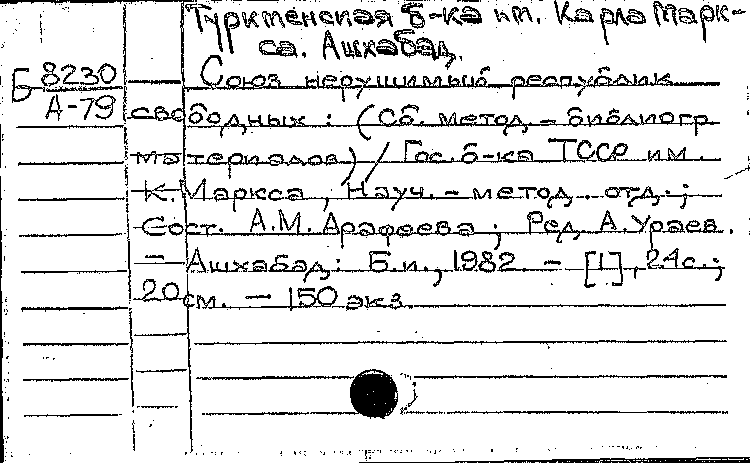 Туркменская б-ка им. Карла Марк-
са. Ашхабад.
Б 8230 Союз нерушимый республик
А-79 свободных : (Сб. метод. - библиогр.
материалов) / Гос. б-ка ТССР им.
К. Маркса, Науч. - метод. отд. ;
Сост. А.М. Арафеева ; Ред. А. Ураев.
— Ашхабад : Б.и., 1982. — [1], 24с. ;
20 см. — 150 экз.